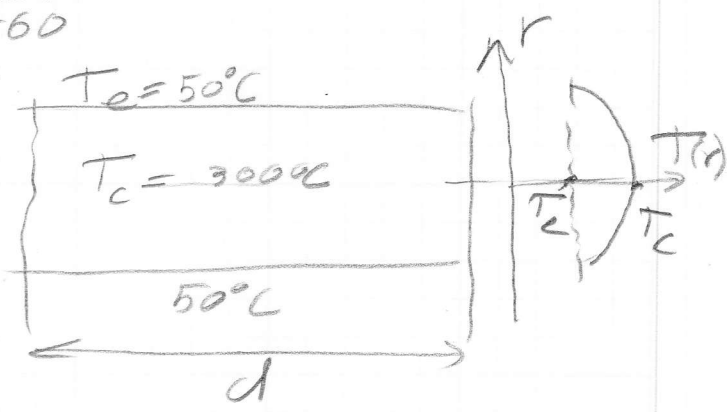 -60
T_e = 50°C
T_c = 300°C
50°C
d
r
T(r)
T_e
T_c